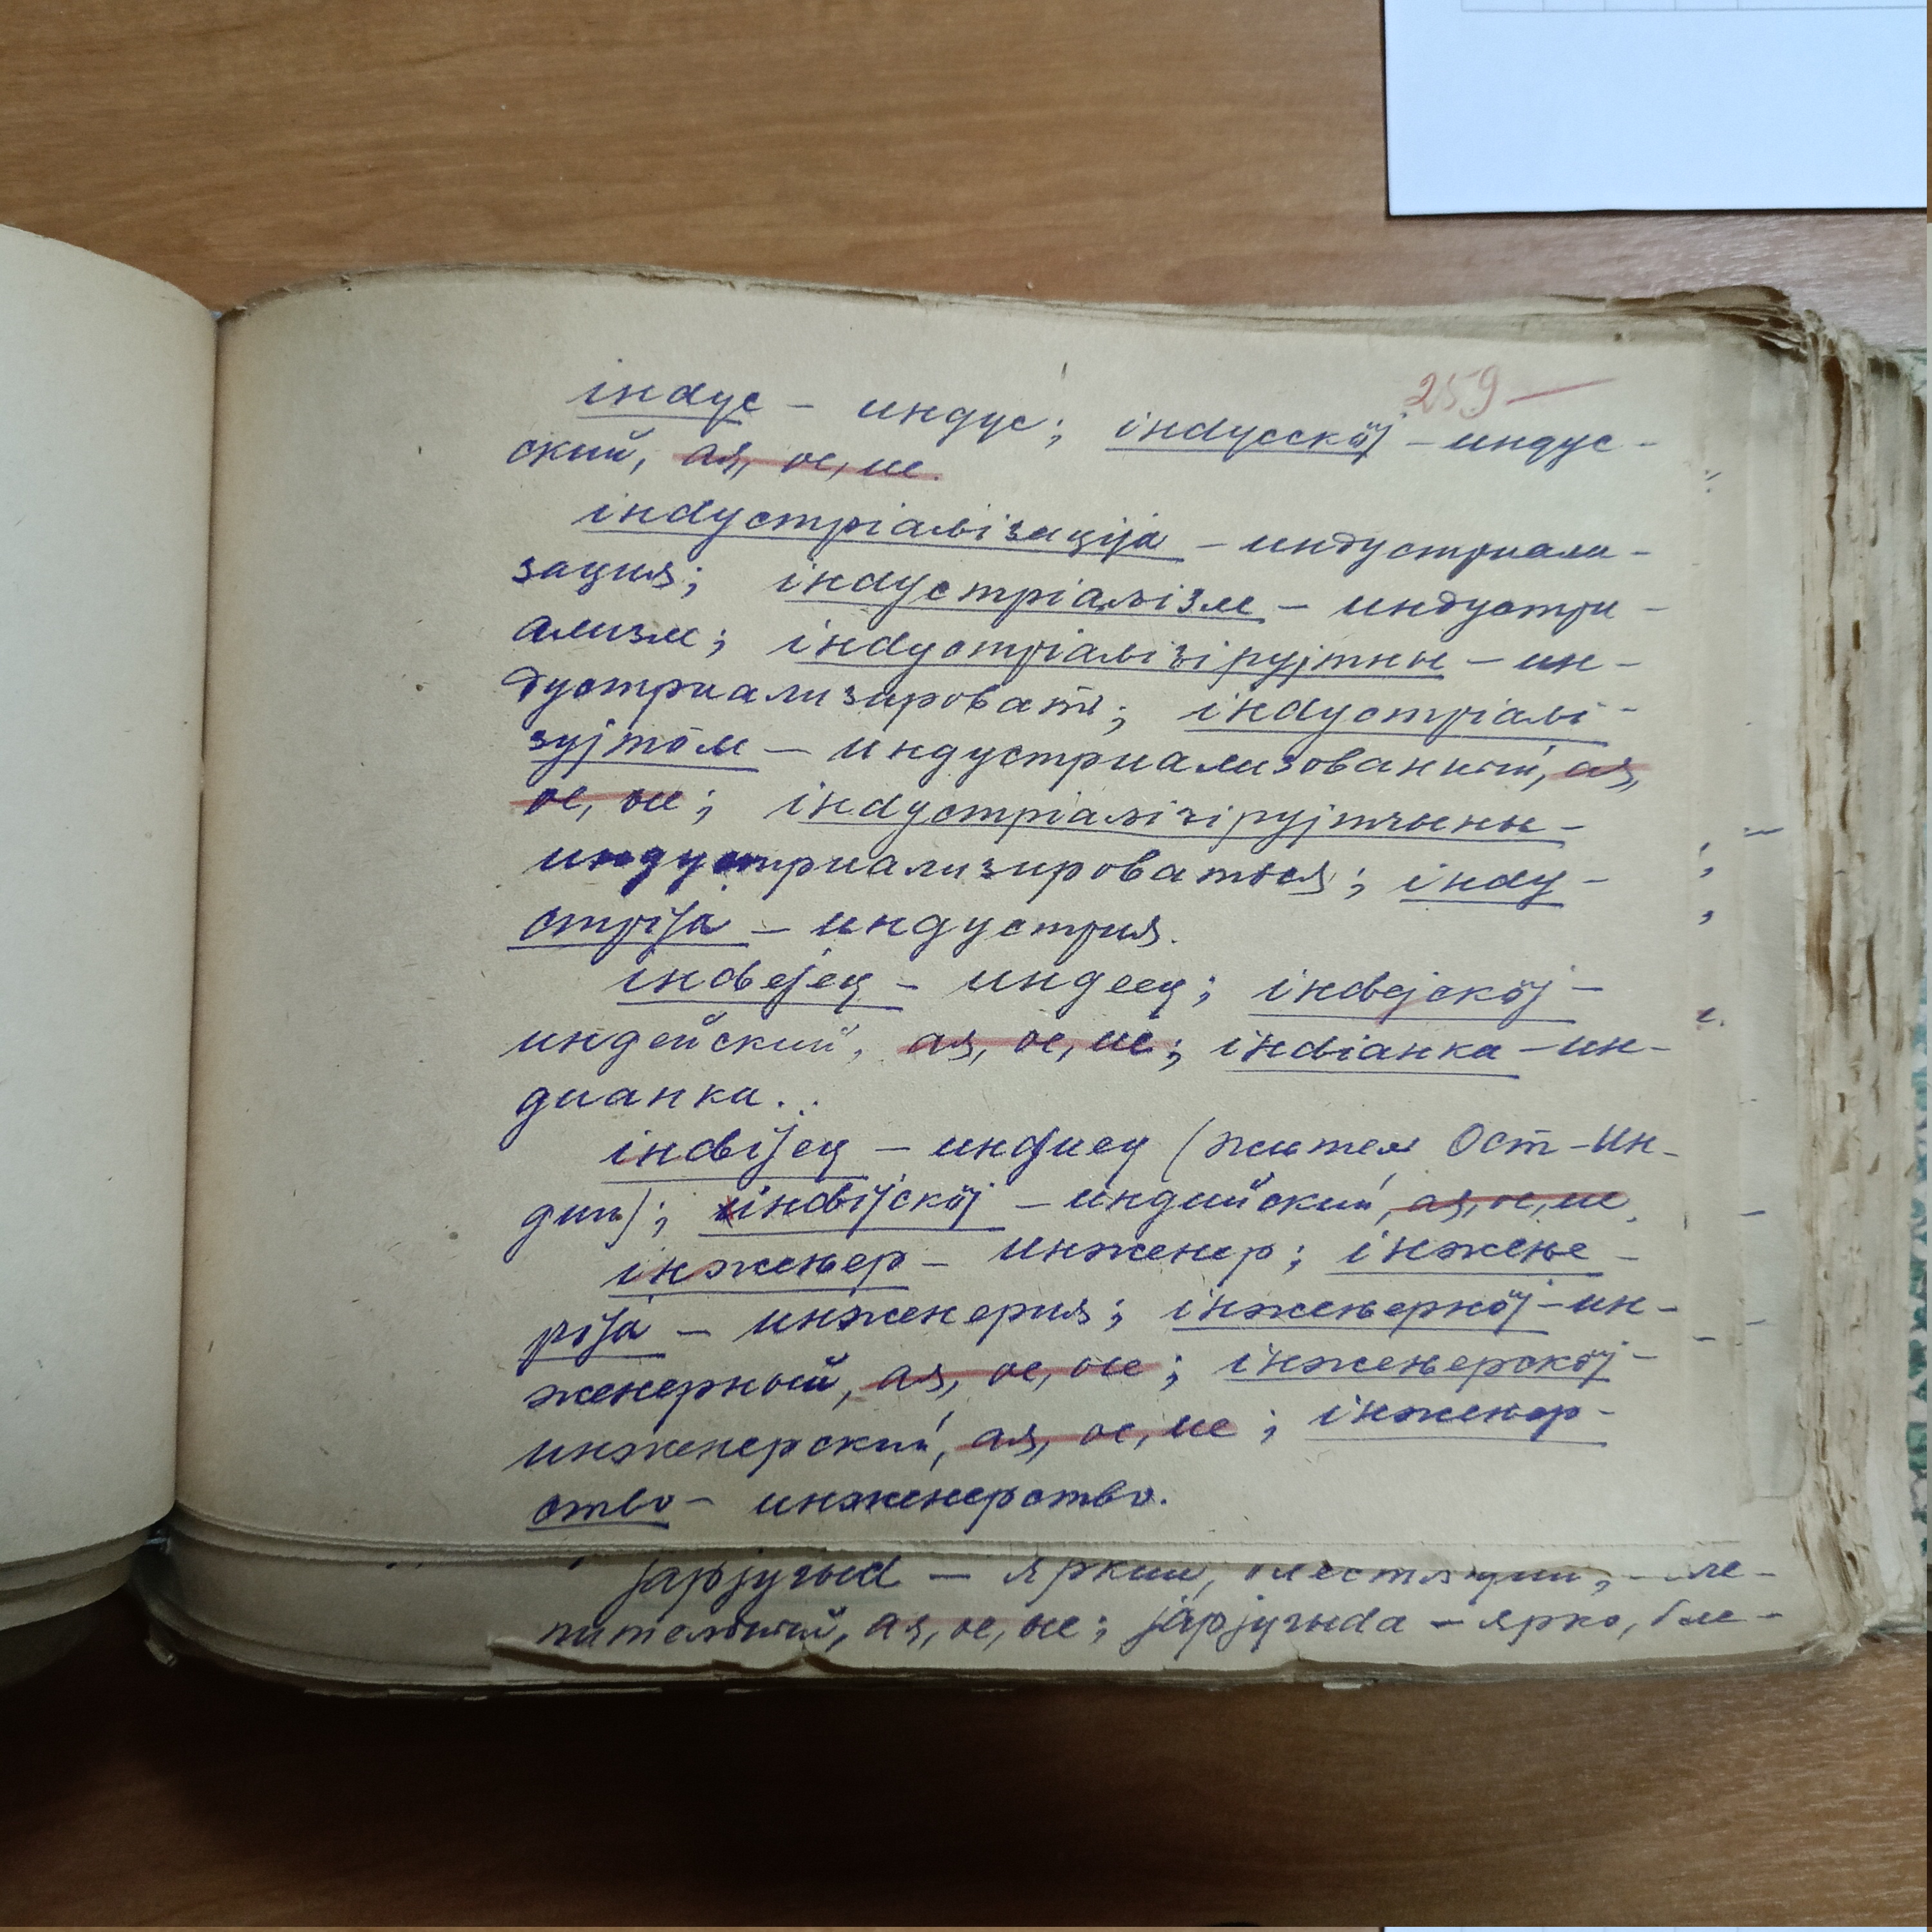 259 —
інԁус – индус; інԁусскӧј – индус-
ский, ая, ое, ие.
інԁустріаԉізаціја – индустриали-
зация; інԁустріаԉізм – индустри-
ализм; інԁустріаԉіԇірујтны – ин-
дустриализировать; інԁустріаԉі-
зујтӧм – индустриализованный, ая,
ое, ые; інԁустріаԉіԇірујтчыны –
индустриализироваться; інԁу-
стріја – индустрия.
інԃејец – индеец; інԃејскӧј –
индейский, ая, ое, ие; інԃіанка – ин-
дианка.
інԃіјец – индиец (жител Ост-Ин-
дии); інԃіјскӧј – индийский, ая, ое, ие.
інжеԋер – инженер; інжеԋе-
ріја – инженерия; інжеԋернӧј – ин-
женерный, ая, ое, ые; інжеԋерскӧј –
инженерский, ая, ое, ие; інжеԋер-
ство – инженерство.
јарјугыԁ – яркий, блестящий,
пительный, ая, ое, ые; јарјугыԁа – ярко, бле-